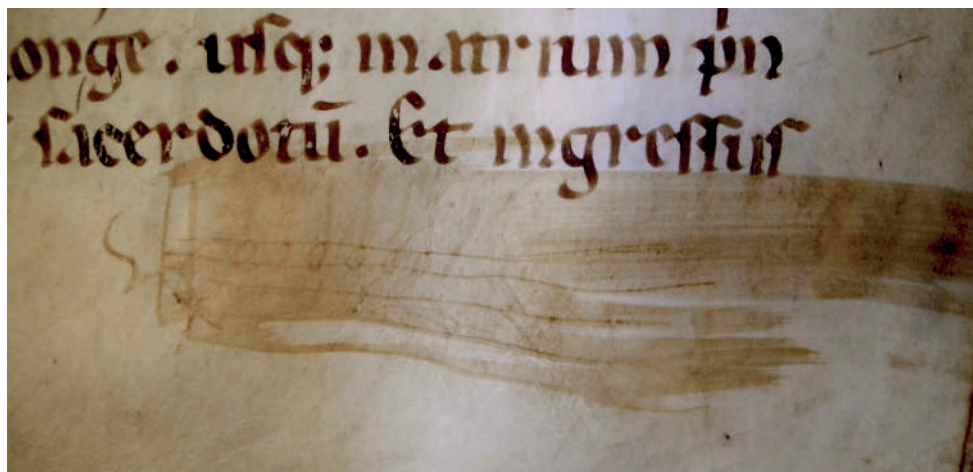 longe. usq; in atrium pn
sacerdotū. Et ingressus